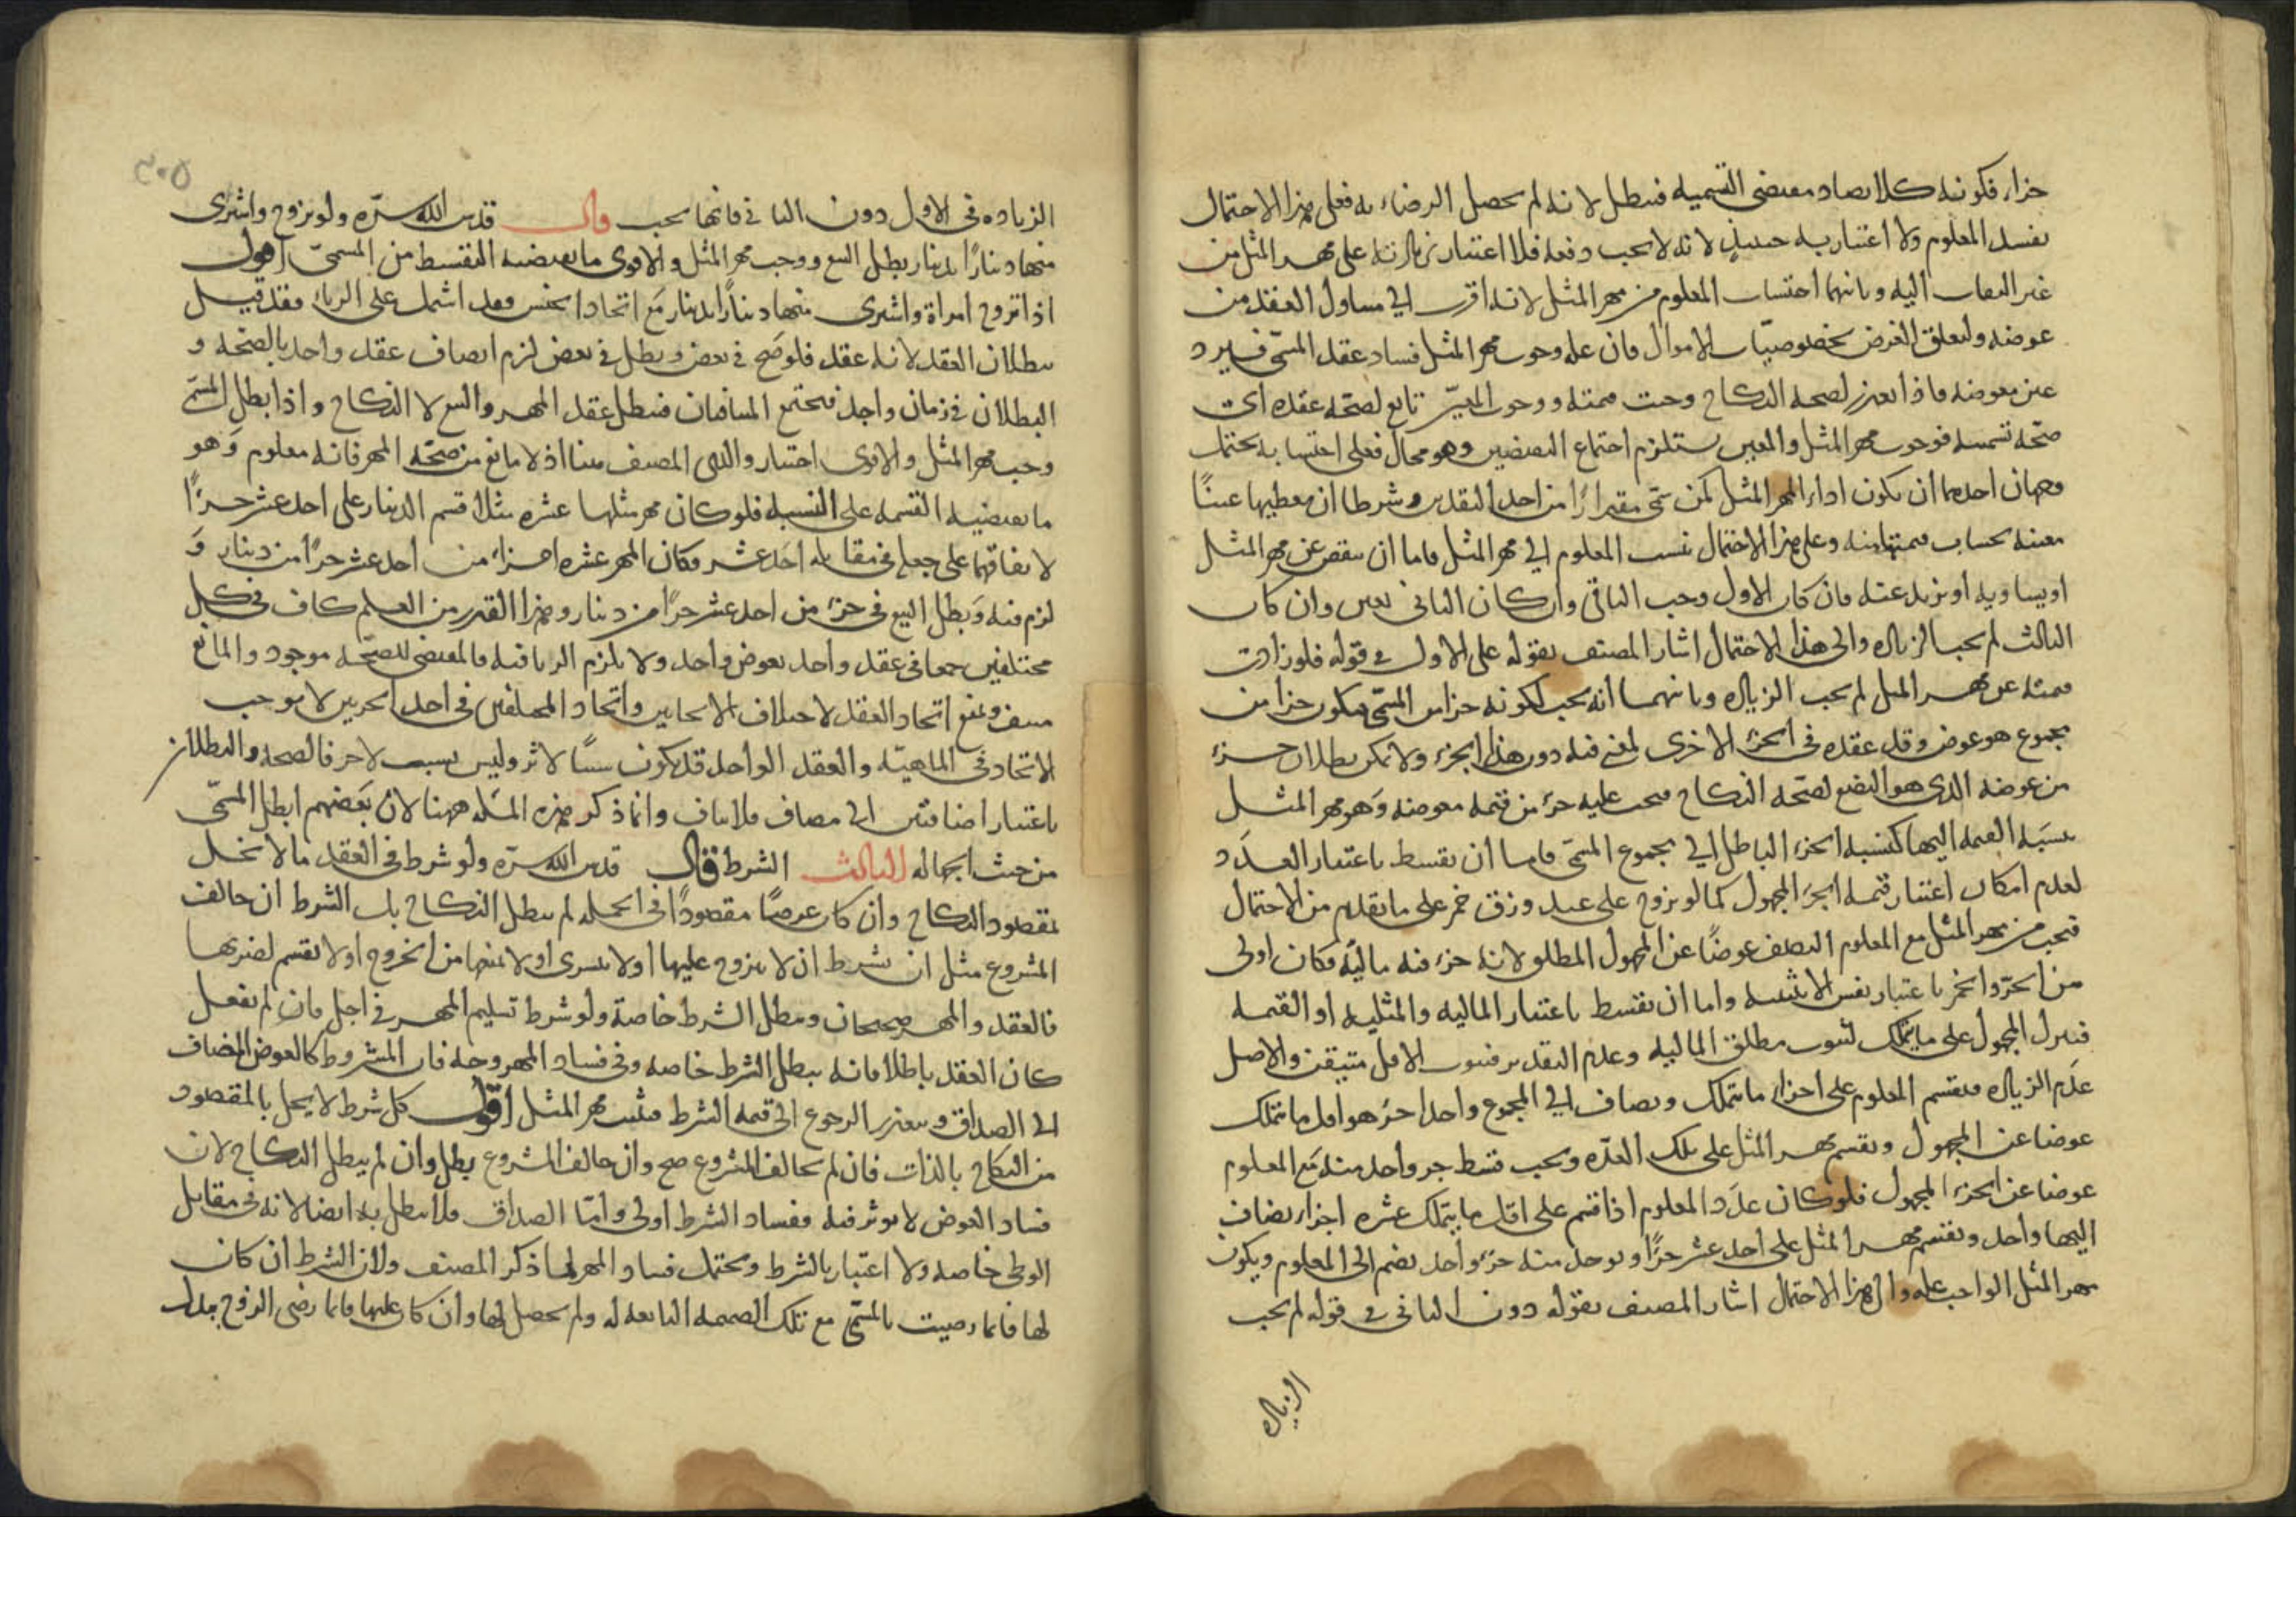 جزاء فكونه كلا يضاد مقتضى التسمية فتبطل لانه لم يحصل الرضاء به فعلى هذا الاحتمال
يفسد المعلوم ولا اعتبار به حينئذ لانه لا يجب دفعه فلا اعتبار بزيادته على مهر المثل من
غير التفات اليه وثانيهما احتساب المعلوم من مهر المثل لانه اقرب الى ما تناول العقد من
عوضه ولتعلق الغرض بخصوصيات الاموال فان علة وجوب مهر المثل فساد عقد المسمى فيرد
عين معوضه فاذا تعذر لصحة النكاح وجبت قيمته ووجوب المعين تابع لصحة عقده اي
صحة تسميته فوجوب مهر المثل والمعين يستلزم اجتماع النقيضين وهو محال فعلى احتسابه يحتمل
وجهان احدهما ان يكون اداء لمهر المثل كمن سمى مقدارا من احد النقدين وشرطا ان يعطيها عينا
معينة بحساب قيمتها منه وعلى هذا الاحتمال ننسب المعلوم الى مهر المثل فاما ان ينقص عن مهر المثل
او يساويه او يزيد عنه فان كان الاول وجب الباقي وان كان الثاني تعين وان كان
الثالث لم يجب الزيادة والى هذا الاحتمال اشار المصنف بقوله على الاول في قوله فلو زادت
قيمته عن مهر المثل لم يجب الزيادة وثانيهما انه يجب لكونه جزا من المسمى فيكون جزا من
مجموع هو عوض وقد عقده في الجزء الاخرى لمعنى فيه دون هذا الجزء ولا يمكن بطلان جزء
من عوضه الذي هو البضع لصحة النكاح فيجب عليه جزء من قيمة معوضه وهو مهر المثل
نسبة القيمة اليها كنسبة الجزء الباطل الى مجموع المسمى فاما ان يقسط باعتبار العدد
لعدم امكان اعتبار قيمة الجزء المجهول كما لو تزوج على عبد وزق خمر على ما تقدم من الاحتمال
فيجب من مهر المثل مع المعلوم النصف عوضا عن المجهول المطلق لانه جزء فيه مالية فكان اولى
من الحر والخمر باعتبار نفس الاثنينية واما ان يقسط باعتبار المالية والمثلية او القيمة
فينزل المجهول على ما يتملك لثبوت مطلق المالية وعدم التقدير فثبوت الاقل متيقن والاصل
عدم الزيادة فيقسم المعلوم على اجزاء ما يتملك ويضاف الى المجموع واحد اخر هو اقل ما يتملك
عوضا عن المجهول ويقسم مهر المثل على تلك العدة ويجب قسط جزء واحد منه مع المعلوم
عوضا عن الجزء المجهول فلو كان عدد المعلوم اذا قسم على اقل ما يتملك عشرة اجزاء يضاف
اليها واحد ويقسم مهر المثل على احد عشر جزءا ويوخذ منه جزء واحد يضم الى المعلوم ويكون
مهر المثل الواجب عليه والى هذا الاحتمال اشار المصنف بقوله دون الثاني في قوله لم يجب
الزيادة
٢٠٥
الزيادة في الاول دون الثاني فانها يجب قال قدس الله سره ولو تزوج واشترى
منها دينارا بدينار بطل البيع ووجب مهر المثل والاقوى ما يقتضيه التقسيط من المسمى اقول
اذا تزوج امراة واشترى منها دينارا بدينار مع اتحاد الجنس فقد اشتمل على الرباء فقد قيل
ببطلان العقد لانه عقد فلو صح في بعض وبطل في بعض لزم اتصاف عقد واحد بالصحة و
البطلان في زمان واحد فيجتمع المتنافيان فيبطل عقد المهر والبيع لا النكاح واذا بطل المسمى
وجب مهر المثل والاقوى اختيار والدي المصنف هنا اذ لا مانع من صحة المهر فانه معلوم وهو
ما يقتضيه القسمة على النسبة فلو كان مهر مثلها عشرة مثلا قسم الدينار على احد عشر جزءا
لاتفاقهما على جعله في مقابلة احد عشر فكان المهر عشرة اجزاء من احد عشر جزءا من دينار و
لزم فيه وبطل البيع في جزء من احد عشر جزءا من دينار وهذا القدر من العلم كاف في كل
مختلفين جمعا في عقد واحد بعوض واحد ولا يلزم الربا فيه فالمقتضى للصحة موجود والمانع
منتف ونمنع اتحاد العقد لاختلاف الايجابين واتحاد المختلفين في احد الجزئين لا يوجب
الاتحاد في الماهية والعقد الواحد قد يكون سببا لاثر وليس بسبب لاخر فالصحة والبطلان
باعتبار اضافتين الى مضاف فلا تناف وانما ذكر هذه المسئلة ههنا لان بعضهم ابطل المسمى
من حيث الجهالة الثالث الشرط قال قدس الله سره ولو شرط في العقد ما لا يخل
بمقصود النكاح وان كان عرضا مقصودا في الجملة لم يبطل النكاح بل الشرط ان خالف
المشروع مثل ان يشرط ان لا يتزوج عليها او لا يتسرى او لا يمنعها من الخروج او لا يقسم لضرتها
فالعقد والمهر صحيحان ويبطل الشرط خاصة ولو شرط تسليم المهر في اجل فان لم يفعل
كان العقد باطلا فانه يبطل الشرط خاصة وفي فساد المهر وجه فان المشروط كالعوض المضاف
الى الصداق ويتعذر الرجوع الى قيمة الشرط فيثبت مهر المثل اقول كل شرط لا يخل بالمقصود
من النكاح بالذات فان لم يخالف المشروع صح وان خالف المشروع بطل وان لم يبطل النكاح لان
فساد العوض لا يوثر فيه ففساد الشرط اولى واما الصداق فلا يبطل به ايضا لانه في مقابل
الوطى خاصة ولا اعتبار بالشرط ويحتمل فساد المهر لما ذكر المصنف ولان الشرط ان كان
لها فانما رضيت بالمسمى مع تلك الضميمة التابعة له ولم يحصل لها وان كان عليها فانما رضى الزوج ببذل